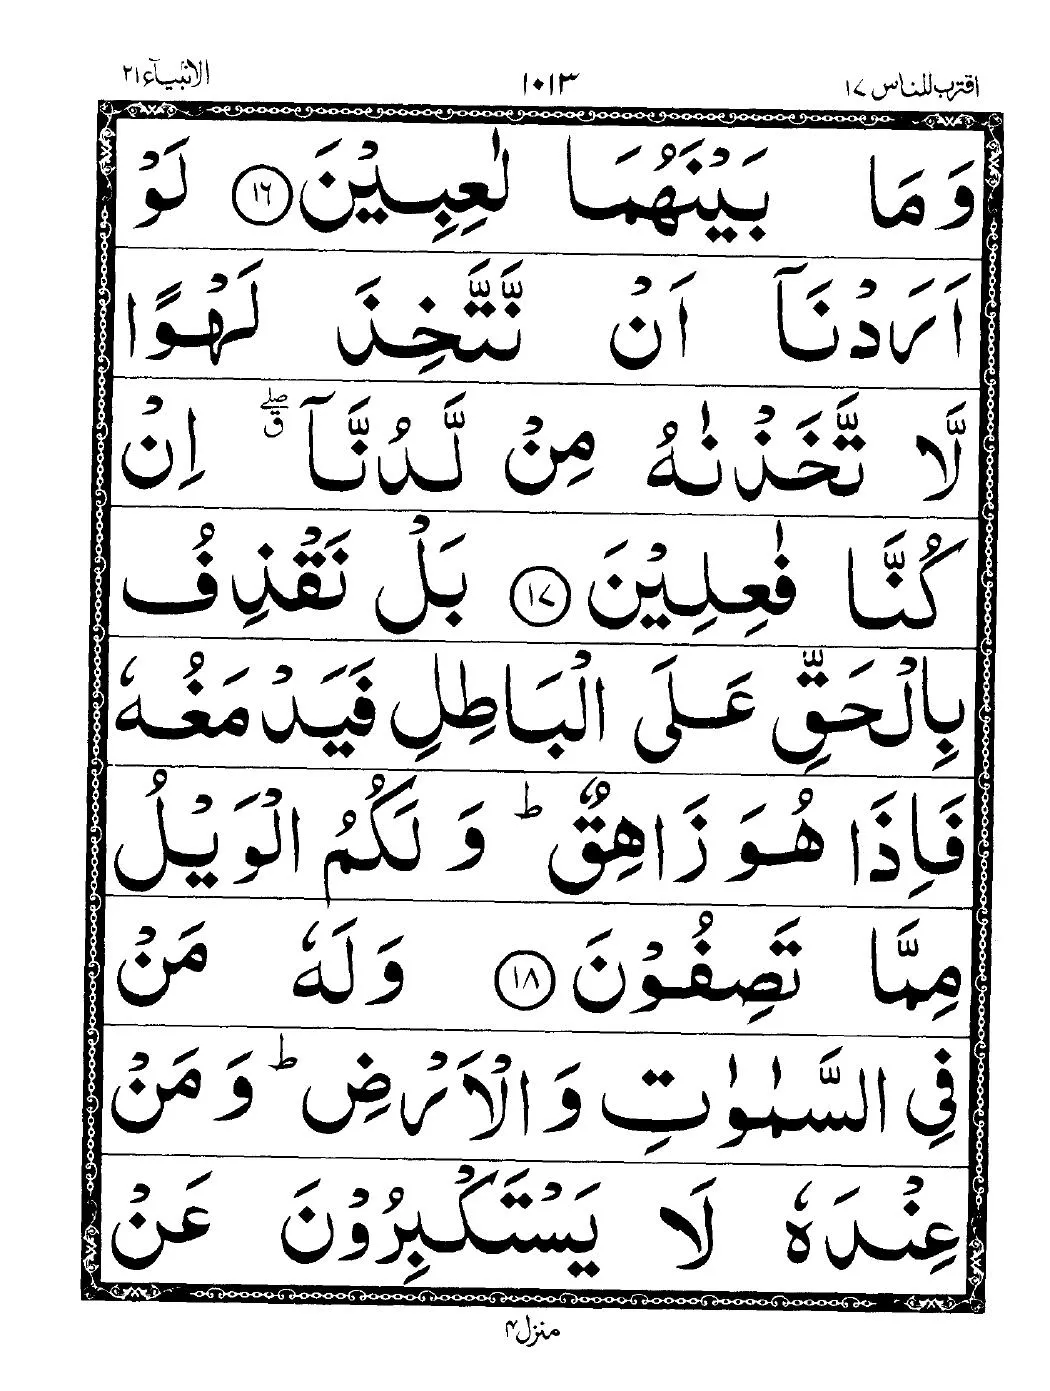 اقترب للناس ١٧ ١٠١٣ الانبیآء ٢١
وَمَا بَيْنَهُمَا لٰعِبِيْنَ ﴿١٦﴾ لَوْ
اَرَدْنَآ اَنْ نَّتَّخِذَ لَهْوًا
لَّا تَّخَذْنٰهُ مِنْ لَّدُنَّآ ۖق اِنْ
كُنَّا فٰعِلِيْنَ ﴿١٧﴾ بَلْ نَقْذِفُ
بِالْحَقِّ عَلَى الْبَاطِلِ فَيَدْمَغُهٗ
فَاِذَا هُوَ زَاهِقٌ ؕ وَ لَكُمُ الْوَيْلُ
مِمَّا تَصِفُوْنَ ﴿١٨﴾ وَلَهٗ مَنْ
فِي السَّمٰوٰتِ وَالْاَرْضِ ؕ وَمَنْ
عِنْدَهٗ لَا يَسْتَكْبِرُوْنَ عَنْ
منزل ۴